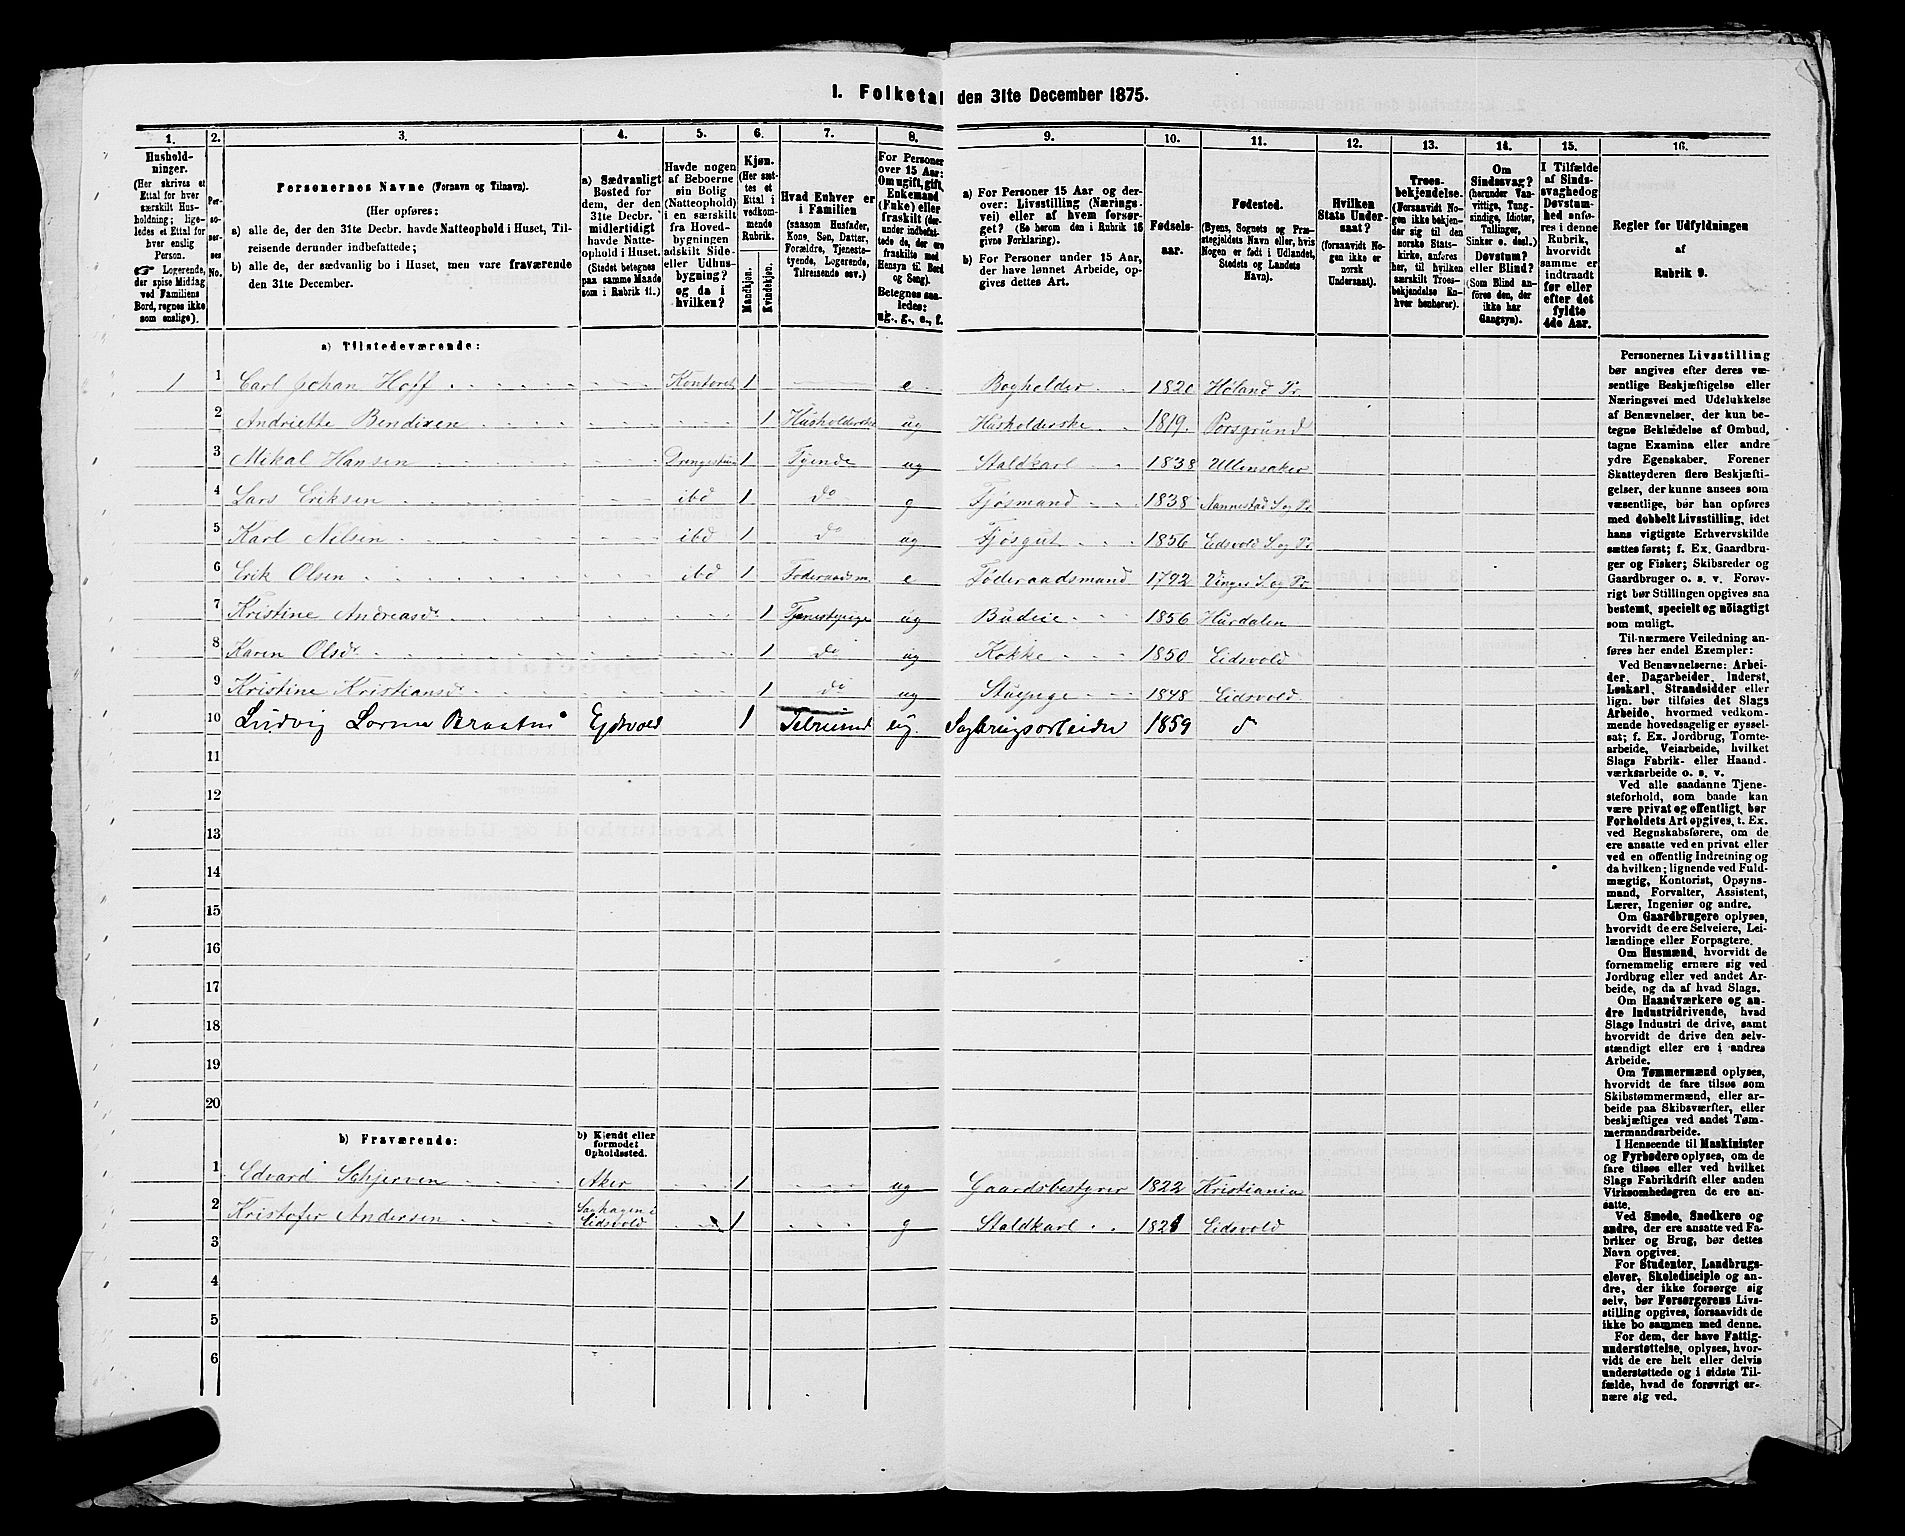 I. Folketal den 31te December 1875.
1. 2. 3. 4. 5. 6. 7. 8. 9. 10. 11. 12. 13. 14. 15. 16.
Hushold-
ninger.
(Her skrives et
Ettal for hver
særskilt Hus-
holdning; lige-
ledes et Ettal for
hver enslig
Person.
☞ Logerende,
der spise Middag
ved Familiens
Bord, regnes ikke
som enslige).
Per-
so-
ner-
nes
No.
Personernes Navne (Fornavn og Tilnavn).
(Her opføres:
a) alle de, der den 31te Decbr. havde Natteophold i Huset, Til-
reisende derunder indbefattede;
b) alle de, der sædvanlig bo i Huset, men vare fraværende
den 31te December.
a) Sædvanligt
Bosted for
dem, der den
31te Decbr.
midlertidigt
havde Natte-
ophold i Huset.
(Stedet betegnes
paa samme Maade
som i Rubrik 11.)
Havde nogen
af Beboerne
sin Bolig
(Natteophold)
i en særskilt
fra Hoved-
bygningen
adskilt Side-
eller Udhus-
bygning?
og da i
hvilken?
Kjøn.
(Her sæt-
tes et
Ettal i
vedkom-
mende
Rubrik.
Mandkjøn.
Kvindekjøn.
Hvad Enhver er
i Familien
(saasom Husfader,
Kone, Søn, Datter,
Forældre, Tjeneste-
tyende, Logerende,
Tilreisende osv.)
For Personer
over 15 Aar:
Om ugift, gift,
Enkemand
(Enke) eller
fraskilt (der-
under indbefat-
tede de, der ere
fraskilte med
Hensyn til Bord
og Seng).
Betegnes saa-
ledes:
ug., g., e., f.
a) For Personer 15 Aar og der-
over: Livsstilling (Nærings-
vei) eller af hvem forsør-
get? (Se herom den i Rubrik 16
givne Forklaring).
b) For Personer under 15 Aar,
der have lønnet Arbeide, op-
gives dettes Art.
Fødsels-
aar.
Fødested.
(Byens, Sognets og Præ-
stegjeldets Navn eller, hvis
Nogen er født i Udlandet,
Stedets og Landets
Navn).
Hvilken
Stats Under-
saat?
(forsaavidt No-
gen ikke er
norsk
Undersaat).
Troes-
bekjendelse.
(Forsaavidt No-
gen ikke bekjen-
der sig til den
norske Stats-
kirke, anføres
her, til hvilken
særskilt Troes-
bekjendelse En-
hver henhører).
Om
Sindssvag?
(herunder Van-
vittige, Tung-
sindige, Idioter,
Tullinger,
Sinker o. desl.)
Døvstum?
eller Blind?
(Som Blind an-
føres den, der
ikke har
Gangsyn).
I Tilfælde
af Sinds-
svaghed og
Døvstum-
hed anfø-
res i denne
Rubrik,
hvorvidt
samme er
indtraadt
før eller
efter det
fyldte
4de Aar.
Regler for Udfyldningen
af
Rubrik 9.
a) Tilstedeværende:
1 1 Carl Johan Hoff Kontoret 1 e Bogholder 1820 Høland Pr
2 Andriette Bendixen 1 Husholderske ug Husholderske 1819. Porsgrund
3 Mikal Hansen Drengestuen 1 Tyende ug Staldkarl 1838 Ullensaker
4 Lars Eriksen ibd 1 do g Fjøsmand 1838 Nannestad S og Pr
5 Karl Nilsen ibd 1 do ug Fjøsgut 1856 Eidsvold S. og Pr
6 Erik Olsen ibd 1 Føderaadsm e Føderaadsmand 1792 Vinger S. og Pr
7 Kristine Andreasdr 1 Tjenestepige ug Budeie 1856 Hurdalen
8 Karen Olsdr 1 do ug Kokke 1850 Eidsvold
9 Kristine Kristiansdr 1 do ug Stuepige 1848 Eidsvold
10 Ludvig Braaten Ejdsvold 1 ug. 1859
11
12
13
14
15
16
17
18
19
20
b) Fraværende:
b) Kjendt eller
formodet
Opholdssted.
1 Edvard Schjerven Aker 1 ug Gaardsbestyrer 1822 Kristiania
2 Kristofer Andersen Saghagen i Eidsvold 1 g Staldkarl 1821 Eidsvold
3
4
5
6
Personernes Livsstilling
bør angives efter deres væ-
sentlige Beskjæftigelse eller
Næringsvei med Udelukkelse
af Benævnelser, der kun be-
tegne Beklædelse af Ombud,
tagne Examina eller andre
ydre Egenskaber. Forener
Skatteyderen flere Beskjæfti-
gelser, der kunne ansees som
væsentlige, bør han opføres
med dobbelt Livsstilling, idet
hans vigtigste Erhvervskilde
sættes først; f. Ex. Gaardbru-
ger og Fisker; Skibsreder og
Gaardbruger o. s. v. Forøv-
rigt bør Stillingen opgives saa
bestemt, specielt og nøiagtigt
som muligt.
Til nærmere Veiledning an-
føres her endel Exempler:
Ved Benævnelserne: Arbei-
der, Dagarbeider, Inderst,
Løskarl, Strandsidder eller
lign. bør tilføies det Slags
Arbeide, hvormed vedkom-
mende hovedsagelig er syssel-
sat; f. Ex. Jordbrug, Tomte-
arbeide, Veiarbeide, hvilket
Slags Fabrik- eller Haand-
værksarbeide o. s. v.
Ved alle saadanne Tjene-
steforhold, som baade kan
være privat og offentligt, bør
Forholdets Art opgives, t. Ex.
ved Regnskabsførere, om de
ere ansatte ved en privat eller
ved en offentlig Indretning og
da hvilken; lignende ved Fuld-
mægtig, Kontorist, Opsyns-
mand, Forvalter, Assistent,
Lærer, Ingeniør og andre.
Om Gaardbrugere oplyses,
hvorvidt de ere Selveiere, Lei-
lændinge eller Forpagtere.
Om Husmænd, hvorvidt de
fornemmelig ernære sig ved
Jordbrug eller ved andet Ar-
beide, og da af hvad Slags.
Om Haandværkere og an-
dre Industridrivende, hvad
Slags Industri de drive, samt
hvorvidt de drive den selv-
stændigt eller ere i andres
Arbeide.
Om Tømmermænd oplyses,
hvorvidt de fare tilsøs som
Skibstømmermænd, eller ar-
beide paa Skibsværfter, eller
beskjæftiges ved andet Tøm-
mermandsarbeide.
I Henseende til Maskinister
og Fyrbødere oplyses, om de
fare tilsøs eller ved hvilket
Slags Fabrikdrift eller anden
Virksomhedsgren de ere an-
satte.
Ved Smede, Snedkere og
andre, der ere ansatte ved Fa-
briker og Brug, bør dettes
Navn opgives.
For Studenter, Landbrugs-
elever, Skoledisciple og an-
dre, der ikke forsørge sig
selv, bør Forsørgerens Livs-
stilling opgives, forsaavidt de
ikke bo sammen med denne.
For dem, der have Fattig-
understøttelse, oplyses, hvor-
vidt de ere helt eller delvis
understøttede og i sidste Til-
fælde, hvad de forøvrigt er-
nære sig ved.